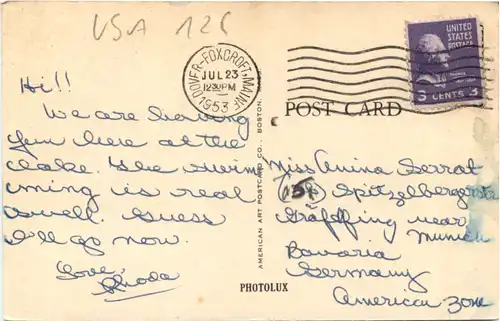 USA 126
DOVER-FOXCROFT, MAINE
JUL 23
1230PM
1953
UNITED
STATES
POSTAGE
3 CENTS 3
POST CARD
Hi!!
We are having
fun here at the
lake. The swim
ming is real
swell. Guess
I'll go now.
Love,
Rhoda
AMERICAN ART POSTCARD CO., BOSTON.
PHOTOLUX
Miss Anina Serrat
Spitzelbergerstr
Gräfling near
Munich
Bavaria
Germany
American Zone